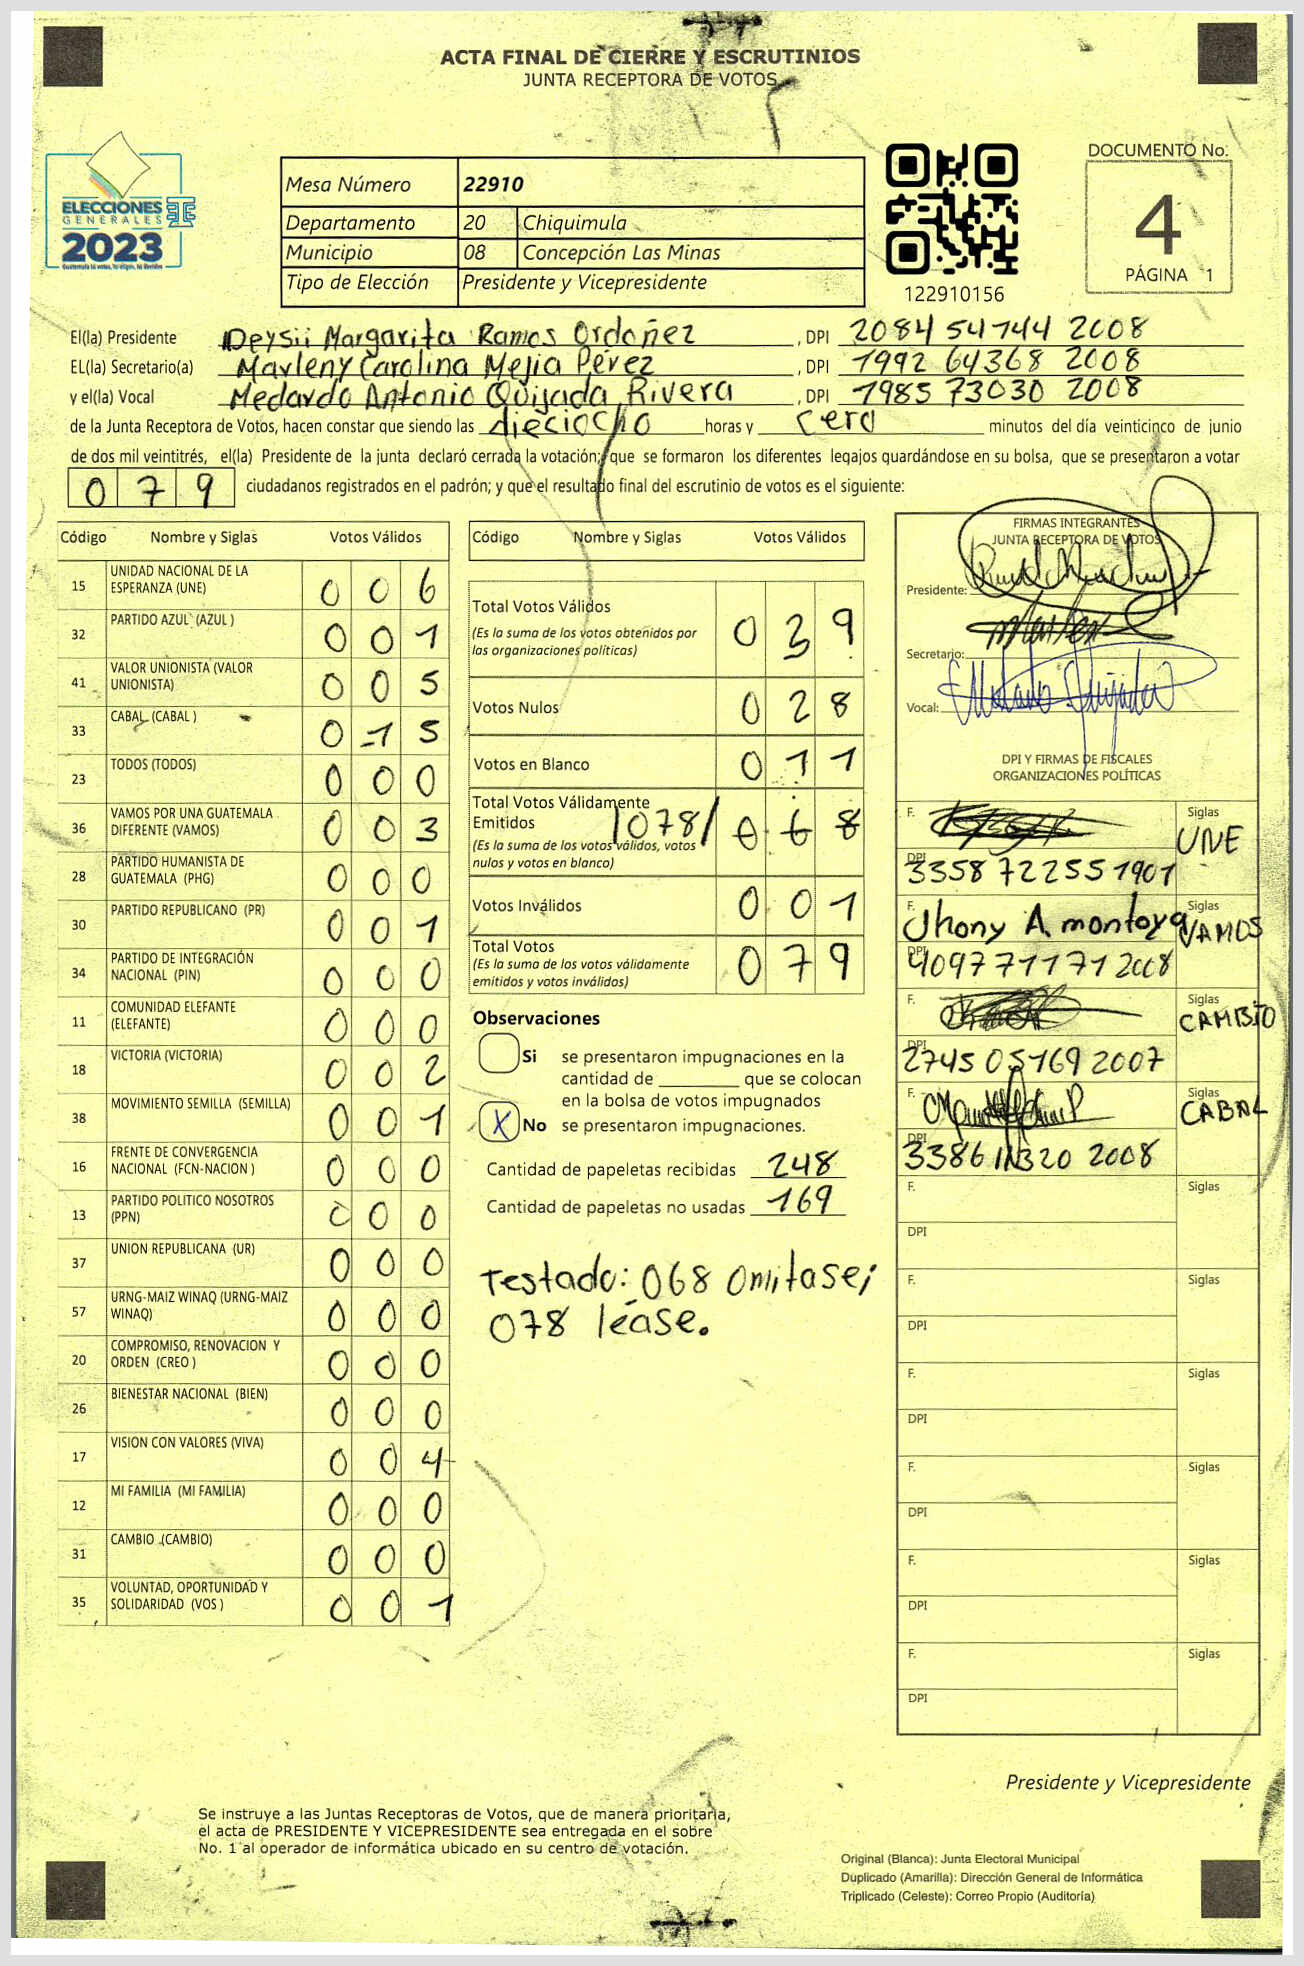 ACTA FINAL DE CIERRE Y ESCRUTINIOS
JUNTA RECEPTORA DE VOTOS
ELECCIONES
GENERALES
2023
Mesa Número 22910
Departamento 20 Chiquimula
Municipio 08 Concepción Las Minas
Tipo de Elección Presidente y Vicepresidente
122910156
DOCUMENTO No.
4
PÁGINA 1
El(la) Presidente Deysii Margarita Ramos Ordoñez , DPI 2084 54744 2008
EL(la) Secretario(a) Marleny Carolina Mejia Pérez , DPI 1992 64368 2008
y el(la) Vocal Medardo Antonio Quijada Rivera , DPI 1985 73030 2008
de la Junta Receptora de Votos, hacen constar que siendo las dieciocho horas y cero minutos del día veinticinco de junio
de dos mil veintitrés, el(la) Presidente de la junta declaró cerrada la votación; que se formaron los diferentes legajos guardándose en su bolsa, que se presentaron a votar
079 ciudadanos registrados en el padrón; y que el resultado final del escrutinio de votos es el siguiente:
Código Nombre y Siglas Votos Válidos
15 UNIDAD NACIONAL DE LA ESPERANZA (UNE) 006
32 PARTIDO AZUL (AZUL ) 001
41 VALOR UNIONISTA (VALOR UNIONISTA) 005
33 CABAL (CABAL ) 015
23 TODOS (TODOS) 000
36 VAMOS POR UNA GUATEMALA DIFERENTE (VAMOS) 003
28 PARTIDO HUMANISTA DE GUATEMALA (PHG) 000
30 PARTIDO REPUBLICANO (PR) 001
34 PARTIDO DE INTEGRACIÓN NACIONAL (PIN) 000
11 COMUNIDAD ELEFANTE (ELEFANTE) 000
18 VICTORIA (VICTORIA) 002
38 MOVIMIENTO SEMILLA (SEMILLA) 001
16 FRENTE DE CONVERGENCIA NACIONAL (FCN-NACION ) 000
13 PARTIDO POLITICO NOSOTROS (PPN) 000
37 UNION REPUBLICANA (UR) 000
57 URNG-MAIZ WINAQ (URNG-MAIZ WINAQ) 000
20 COMPROMISO, RENOVACION Y ORDEN (CREO ) 000
26 BIENESTAR NACIONAL (BIEN) 000
17 VISION CON VALORES (VIVA) 004
12 MI FAMILIA (MI FAMILIA) 000
31 CAMBIO (CAMBIO) 000
35 VOLUNTAD, OPORTUNIDAD Y SOLIDARIDAD (VOS ) 001
Código Nombre y Siglas Votos Válidos
Total Votos Válidos 039
(Es la suma de los votos obtenidos por
las organizaciones políticas)
Votos Nulos 028
Votos en Blanco 011
Total Votos Válidamente
Emitidos 078 068
(Es la suma de los votos válidos, votos
nulos y votos en blanco)
Votos Inválidos 001
Total Votos 079
(Es la suma de los votos válidamente
emitidos y votos inválidos)
Observaciones
Si se presentaron impugnaciones en la
cantidad de ________ que se colocan
en la bolsa de votos impugnados
X No se presentaron impugnaciones.
Cantidad de papeletas recibidas 248
Cantidad de papeletas no usadas 169
Testado: 068 Omitase;
078 léase.
FIRMAS INTEGRANTES
JUNTA RECEPTORA DE VOTOS
Presidente:
Secretario:
Vocal:
DPI Y FIRMAS DE FISCALES
ORGANIZACIONES POLÍTICAS
F. Siglas UNE
DPI 3358 72255 1901
F. Jhony A. montoya Siglas VAMOS
DPI 4097 71171 2008
F. Siglas CAMBIO
DPI 2745 05169 2007
F. Siglas CABAL
DPI 3386 320 2008
F. Siglas
DPI
F. Siglas
DPI
F. Siglas
DPI
F. Siglas
DPI
F. Siglas
DPI
F. Siglas
DPI
Presidente y Vicepresidente
Se instruye a las Juntas Receptoras de Votos, que de manera prioritaria,
el acta de PRESIDENTE Y VICEPRESIDENTE sea entregada en el sobre
No. 1 al operador de informática ubicado en su centro de votación.
Original (Blanca): Junta Electoral Municipal
Duplicado (Amarilla): Dirección General de Informática
Triplicado (Celeste): Correo Propio (Auditoría)